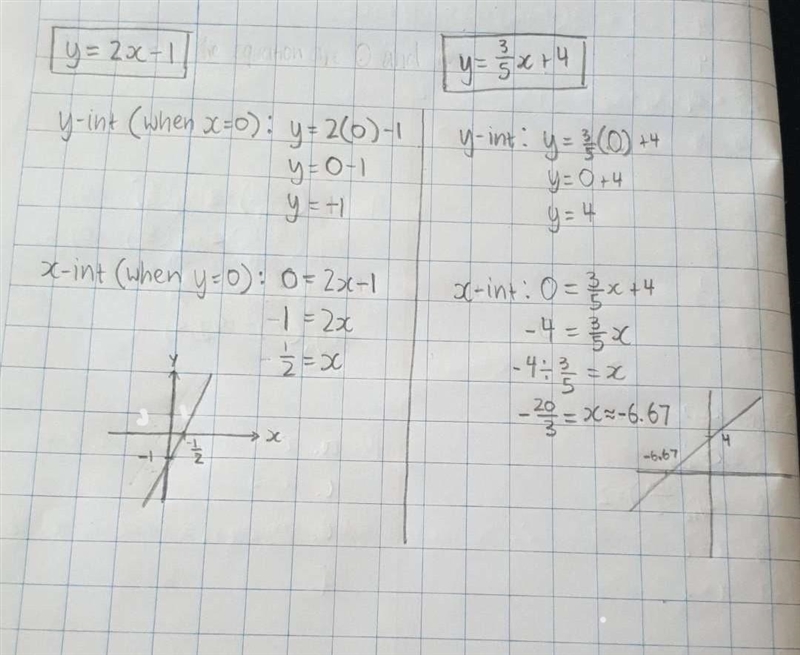 y = 2x - 1
y-int (when x=0): y = 2(0) - 1
y = 0 - 1
y = -1
x-int (when y=0): 0 = 2x - 1
1 = 2x
1/2 = x
y
x
-1
1/2
y = 3/5 x + 4
y-int: y = 3/5 (0) + 4
y = 0 + 4
y = 4
x-int: 0 = 3/5 x + 4
-4 = 3/5 x
-4 ÷ 3/5 = x
-20/3 = x ≈ -6.67
-6.67
4